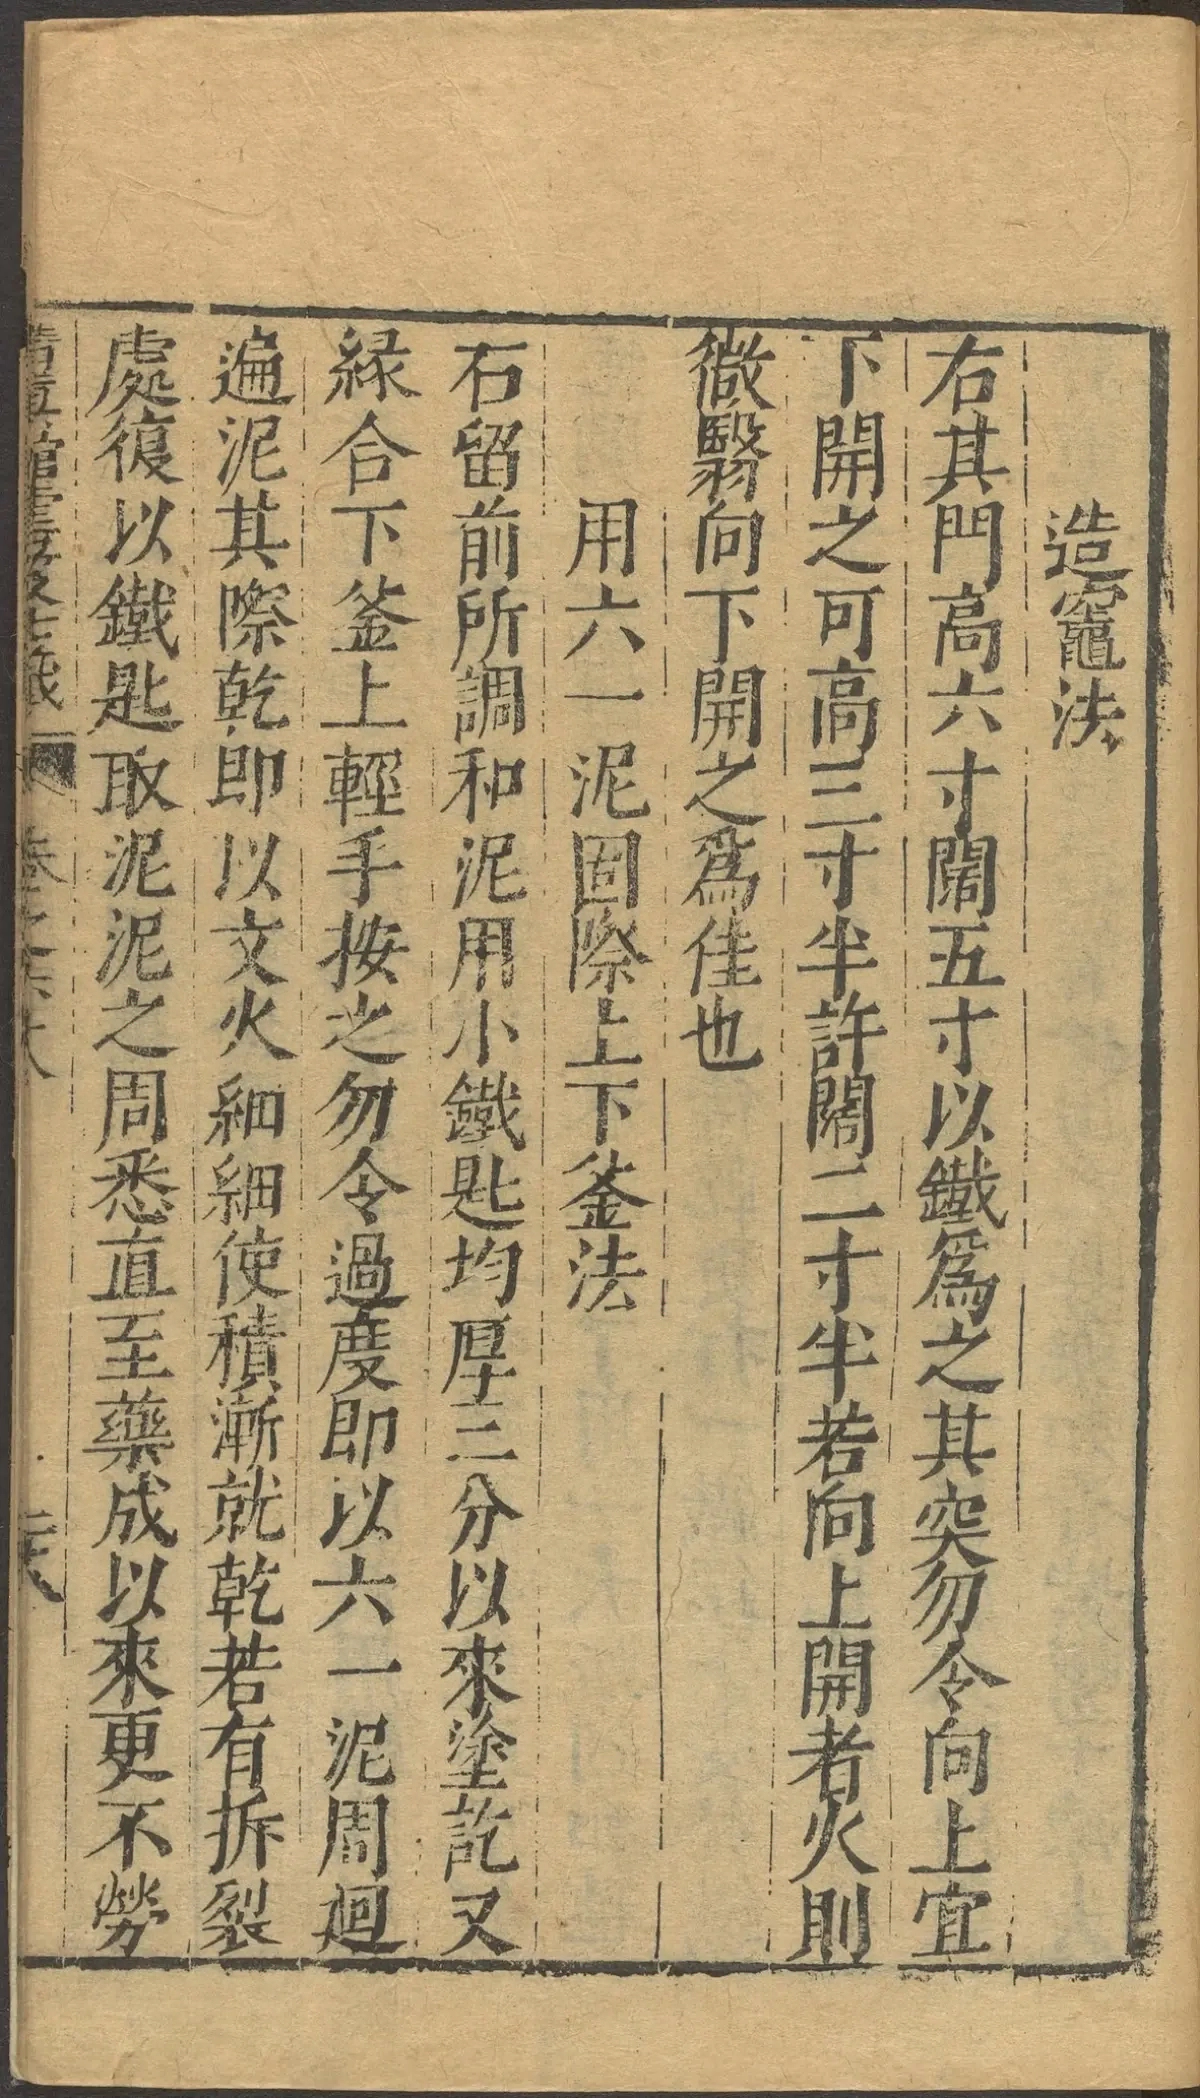 造竈法
右其門高六寸闊五寸以鐵爲之其突勿令向上宜
下開之可高三寸半許闊二寸半若向上開者火則
微翳向下開之爲佳也
用六一泥固際上下釜法
右留前所調和泥用小鐵匙均厚二分以來塗訖又
緣合下釜上輕手按之勿令過度即以六一泥周迴
遍泥其際乾即以文火細細使積漸就乾若有拆裂
處復以鐵匙取泥泥之周悉直至藥成以來更不勞
清真館雲笈七籤 卷之六十八